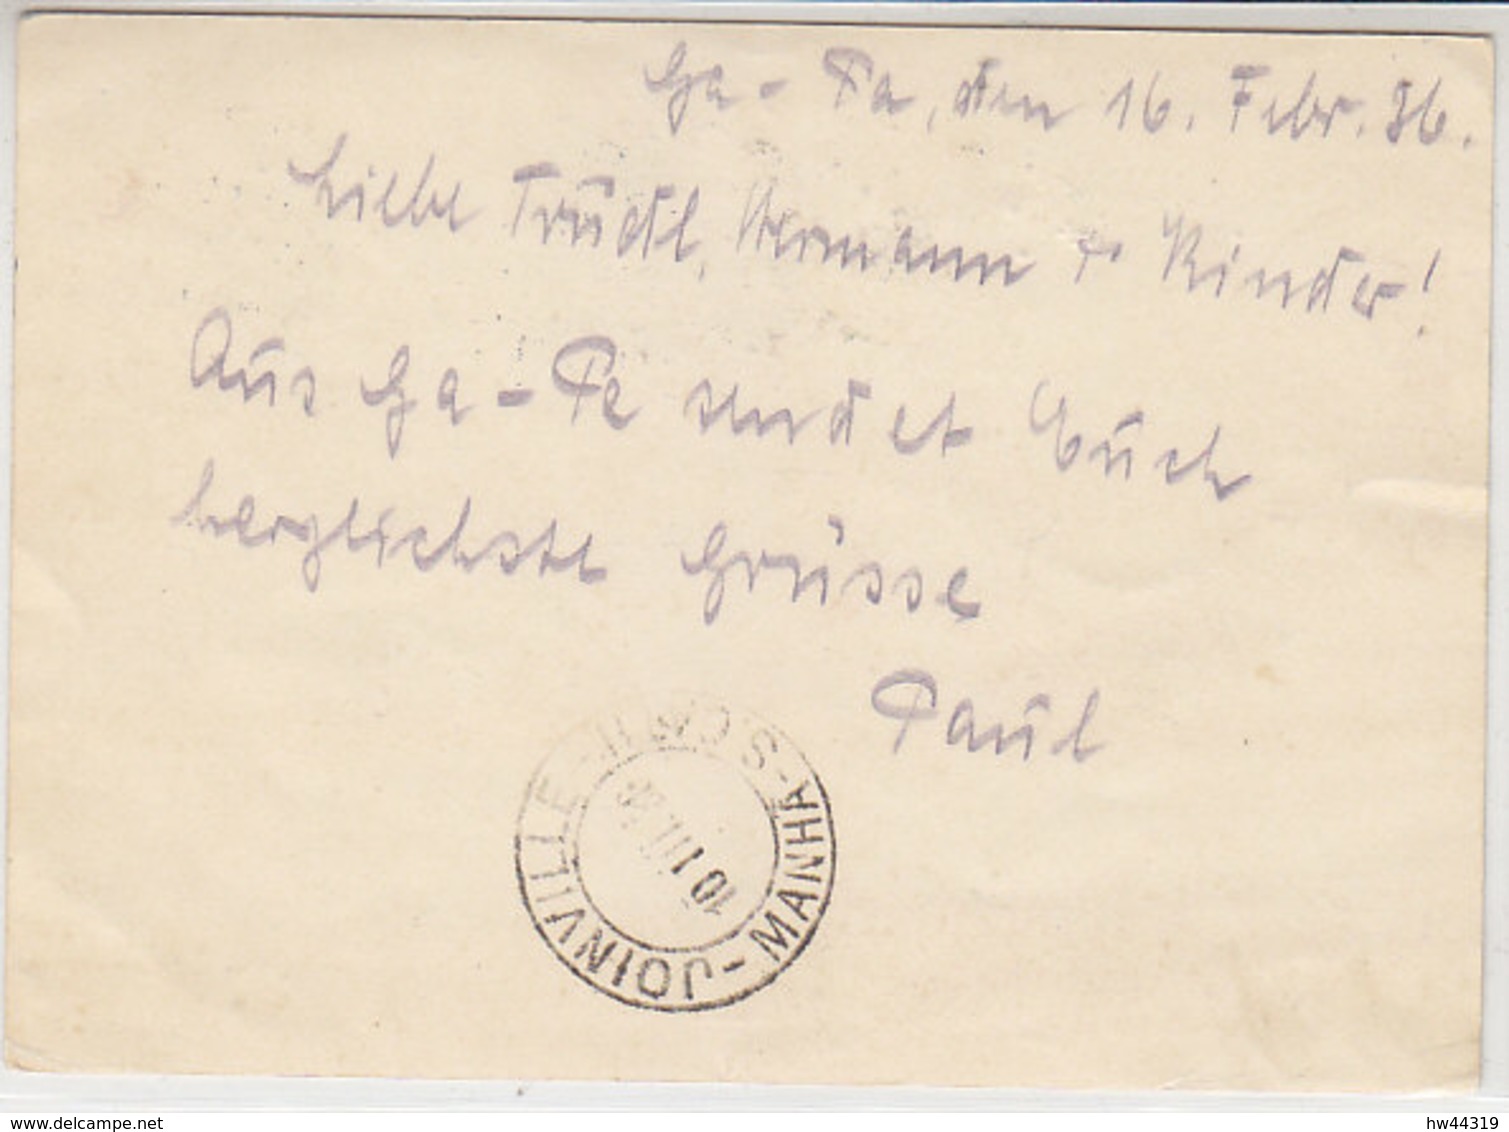 Ga-Pa, den 16. Febr. 36.
Liebe Trudl, Hermann & Kinder!
Aus Ga-Pa sendet Euch
herzlichste Grüsse
Paul
JOINVILLE - S.CATH - MANHÃ -
10 III 36
www.delcampe.net
hw44319